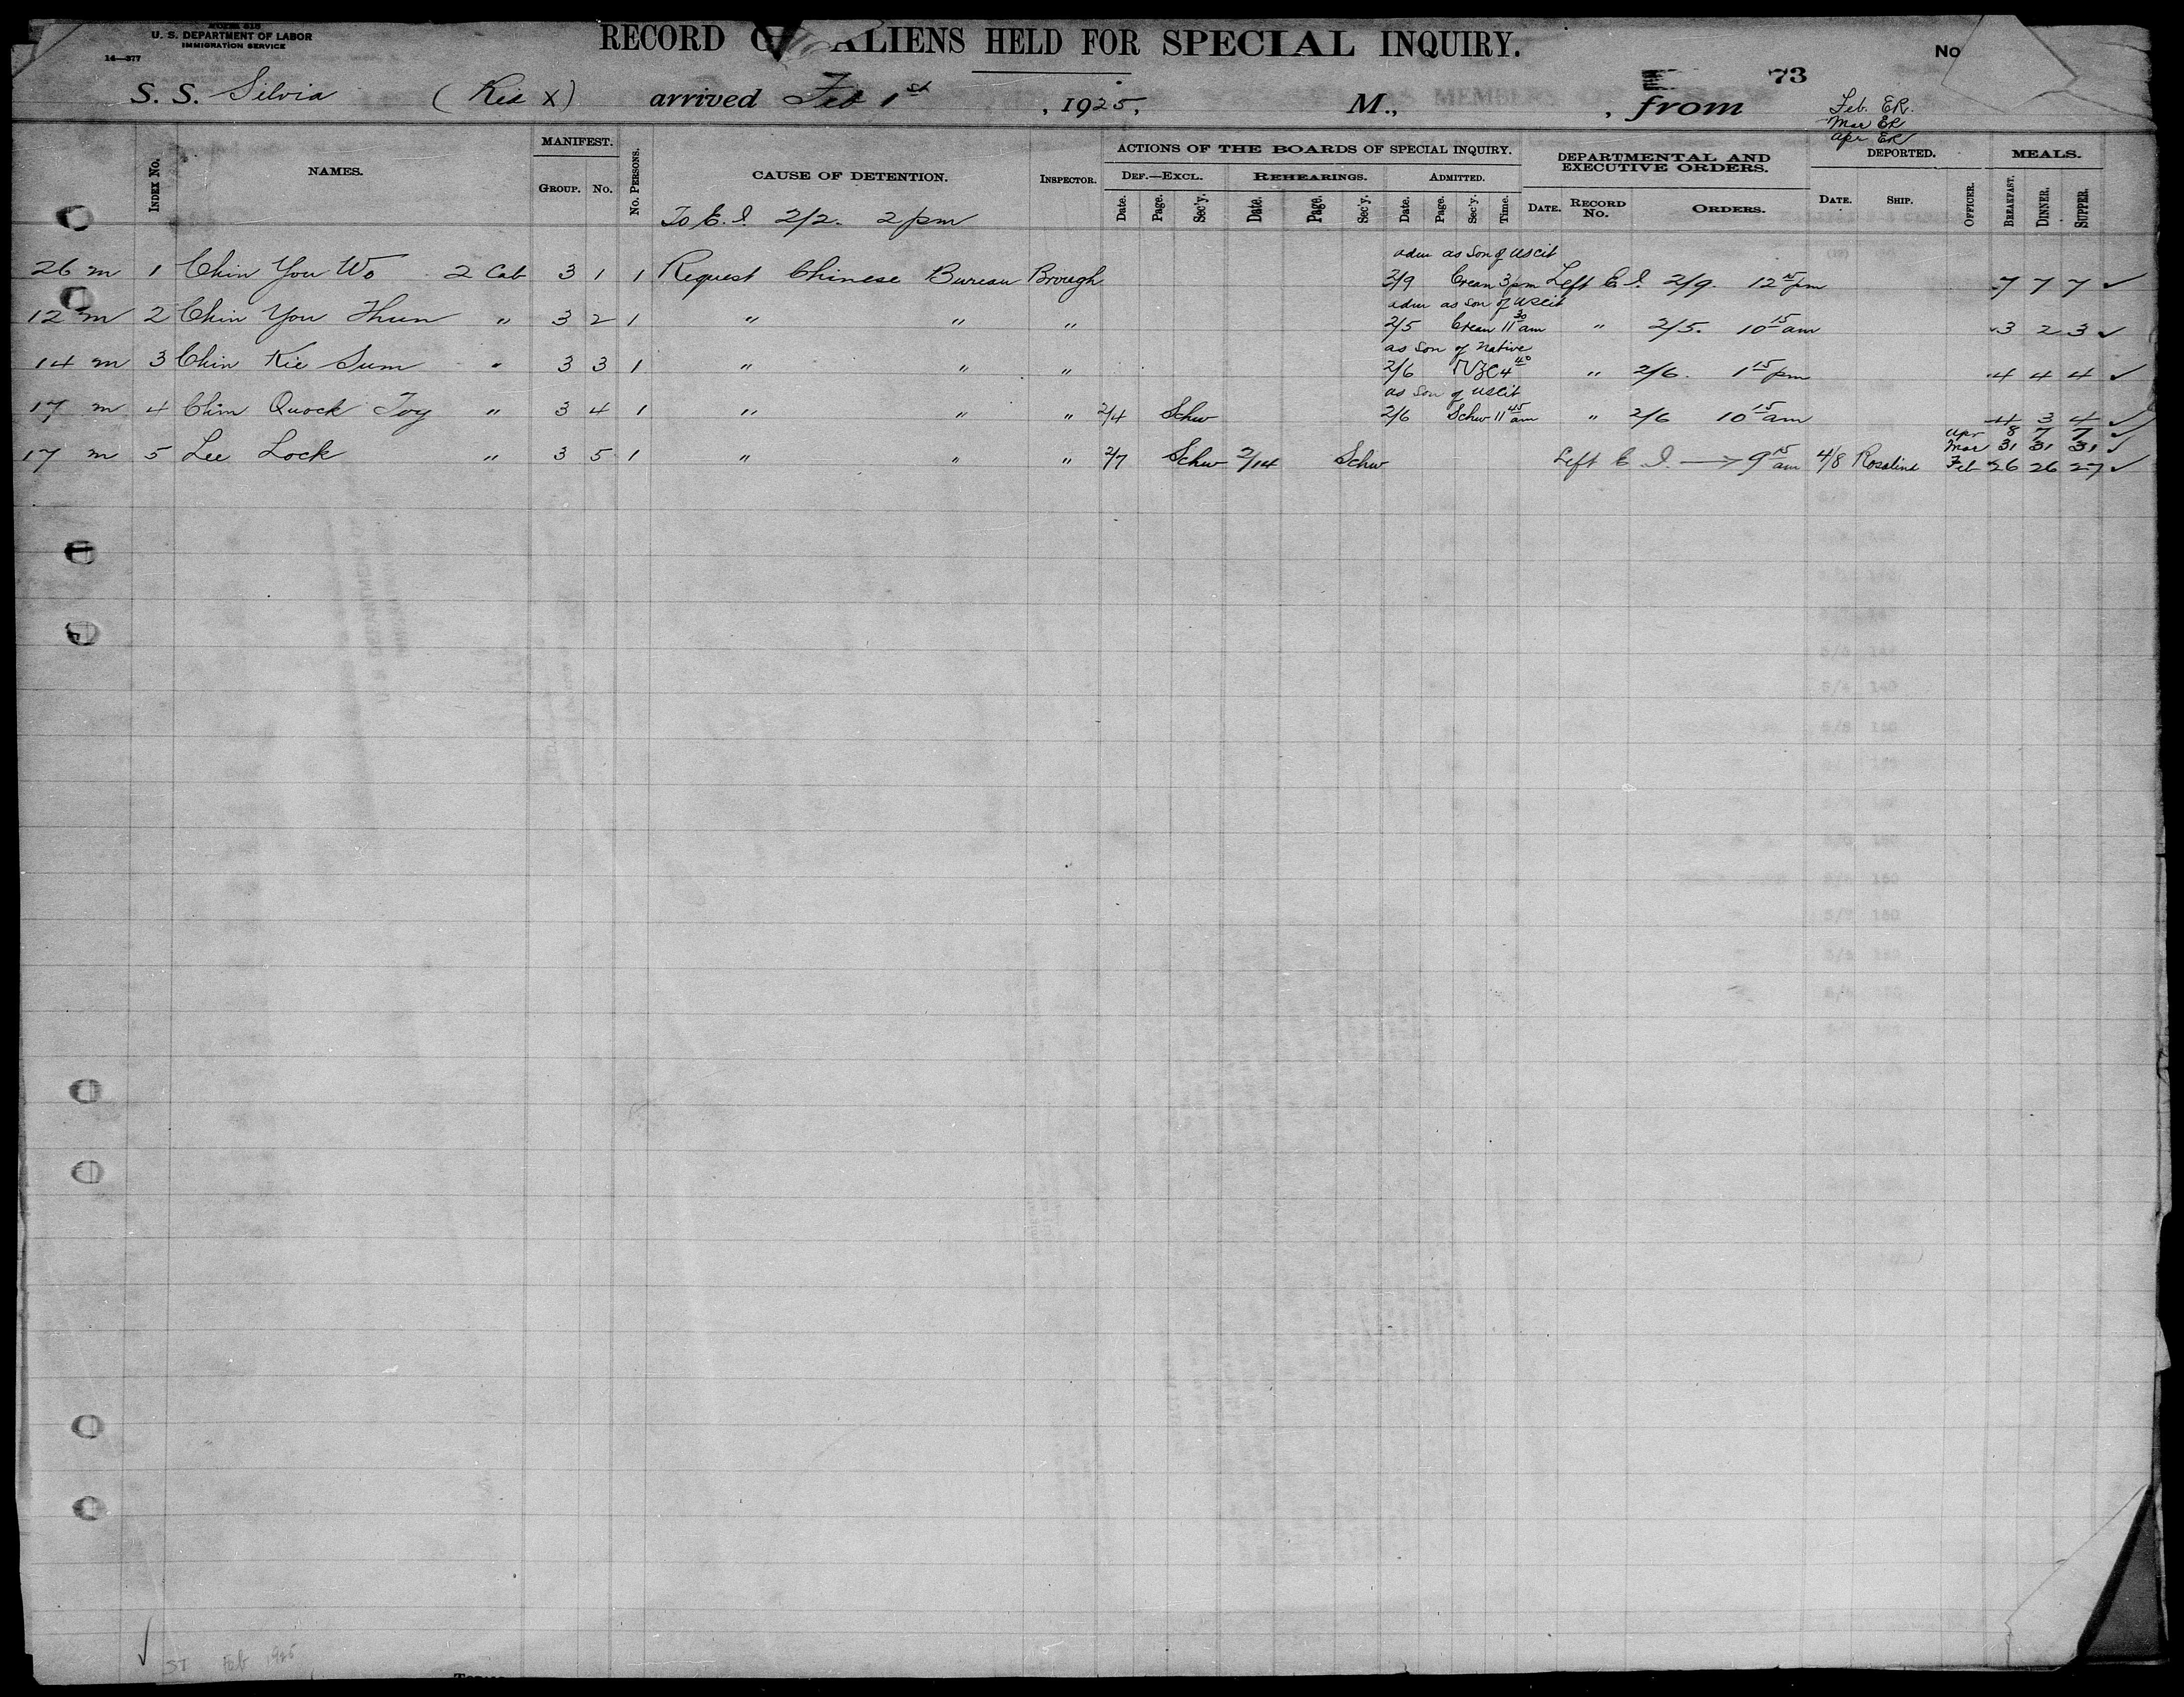 U. S. DEPARTMENT OF LABOR
IMMIGRATION SERVICE
14—377
RECORD OF ALIENS HELD FOR SPECIAL INQUIRY.
No
73
S. S. Silvia (Red X) arrived Feb 1st, 1925, M., , from
Feb. ER.
Mar ER
Apr ER
INDEX No. NAMES. MANIFEST. GROUP. No. No. PERSONS. CAUSE OF DETENTION. INSPECTOR. ACTIONS OF THE BOARDS OF SPECIAL INQUIRY. DEPARTMENTAL AND EXECUTIVE ORDERS. DEPORTED. MEALS.
DEF.—EXCL. REHEARINGS. ADMITTED.
Date. Page. Sec'y. Date. Page. Sec'y. Date. Page. Sec'y. Time. DATE. RECORD No. ORDERS. DATE. SHIP. OFFICER. BREAKFAST. DINNER. SUPPER.
To E. I. 2/2. 2 pm
adm as Son of UScit
26 m 1 Chin You Wo 2 Cab 3 1 1 Request Chinese Bureau Brough 2/9 Crean 3 pm Left E I. 2/9. 12 15 pm 7 7 7 ✓
adm as son of UScit
12 m 2 Chin You Thun " 3 2 1 " " " 2/5 Crean 11 30 am " 2/5. 10 15 am 3 2 3 ✓
as Son of native
14 m 3 Chin Kie Sum " 3 3 1 " " " 2/6 4 40 " 2/6. 1 15 pm 4 4 4 ✓
as Son of UScit
17 m 4 Chin Quock Toy " 3 4 1 " " " 2/4 Schw 2/6 Schw 11 45 am " 2/6 10 15 am 4 3 4 ✓
Apr 8 7 7 ✓
Mar 31 31 31 ✓
17 m 5 Lee Lock " 3 5 1 " " " 2/7 Schw 2/14 Schw Left E. I. → 9 15 am 4/8 Rosalind Feb 26 26 27 ✓
Feb 1925